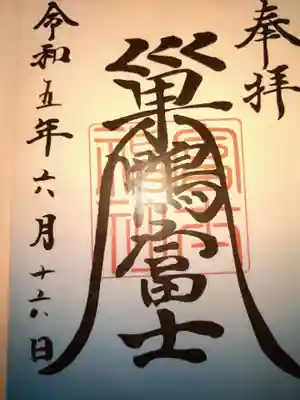 奉拝
巣鴨富士
令和五年六月十六日